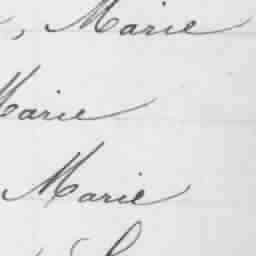 , Marie
Marie
Marie